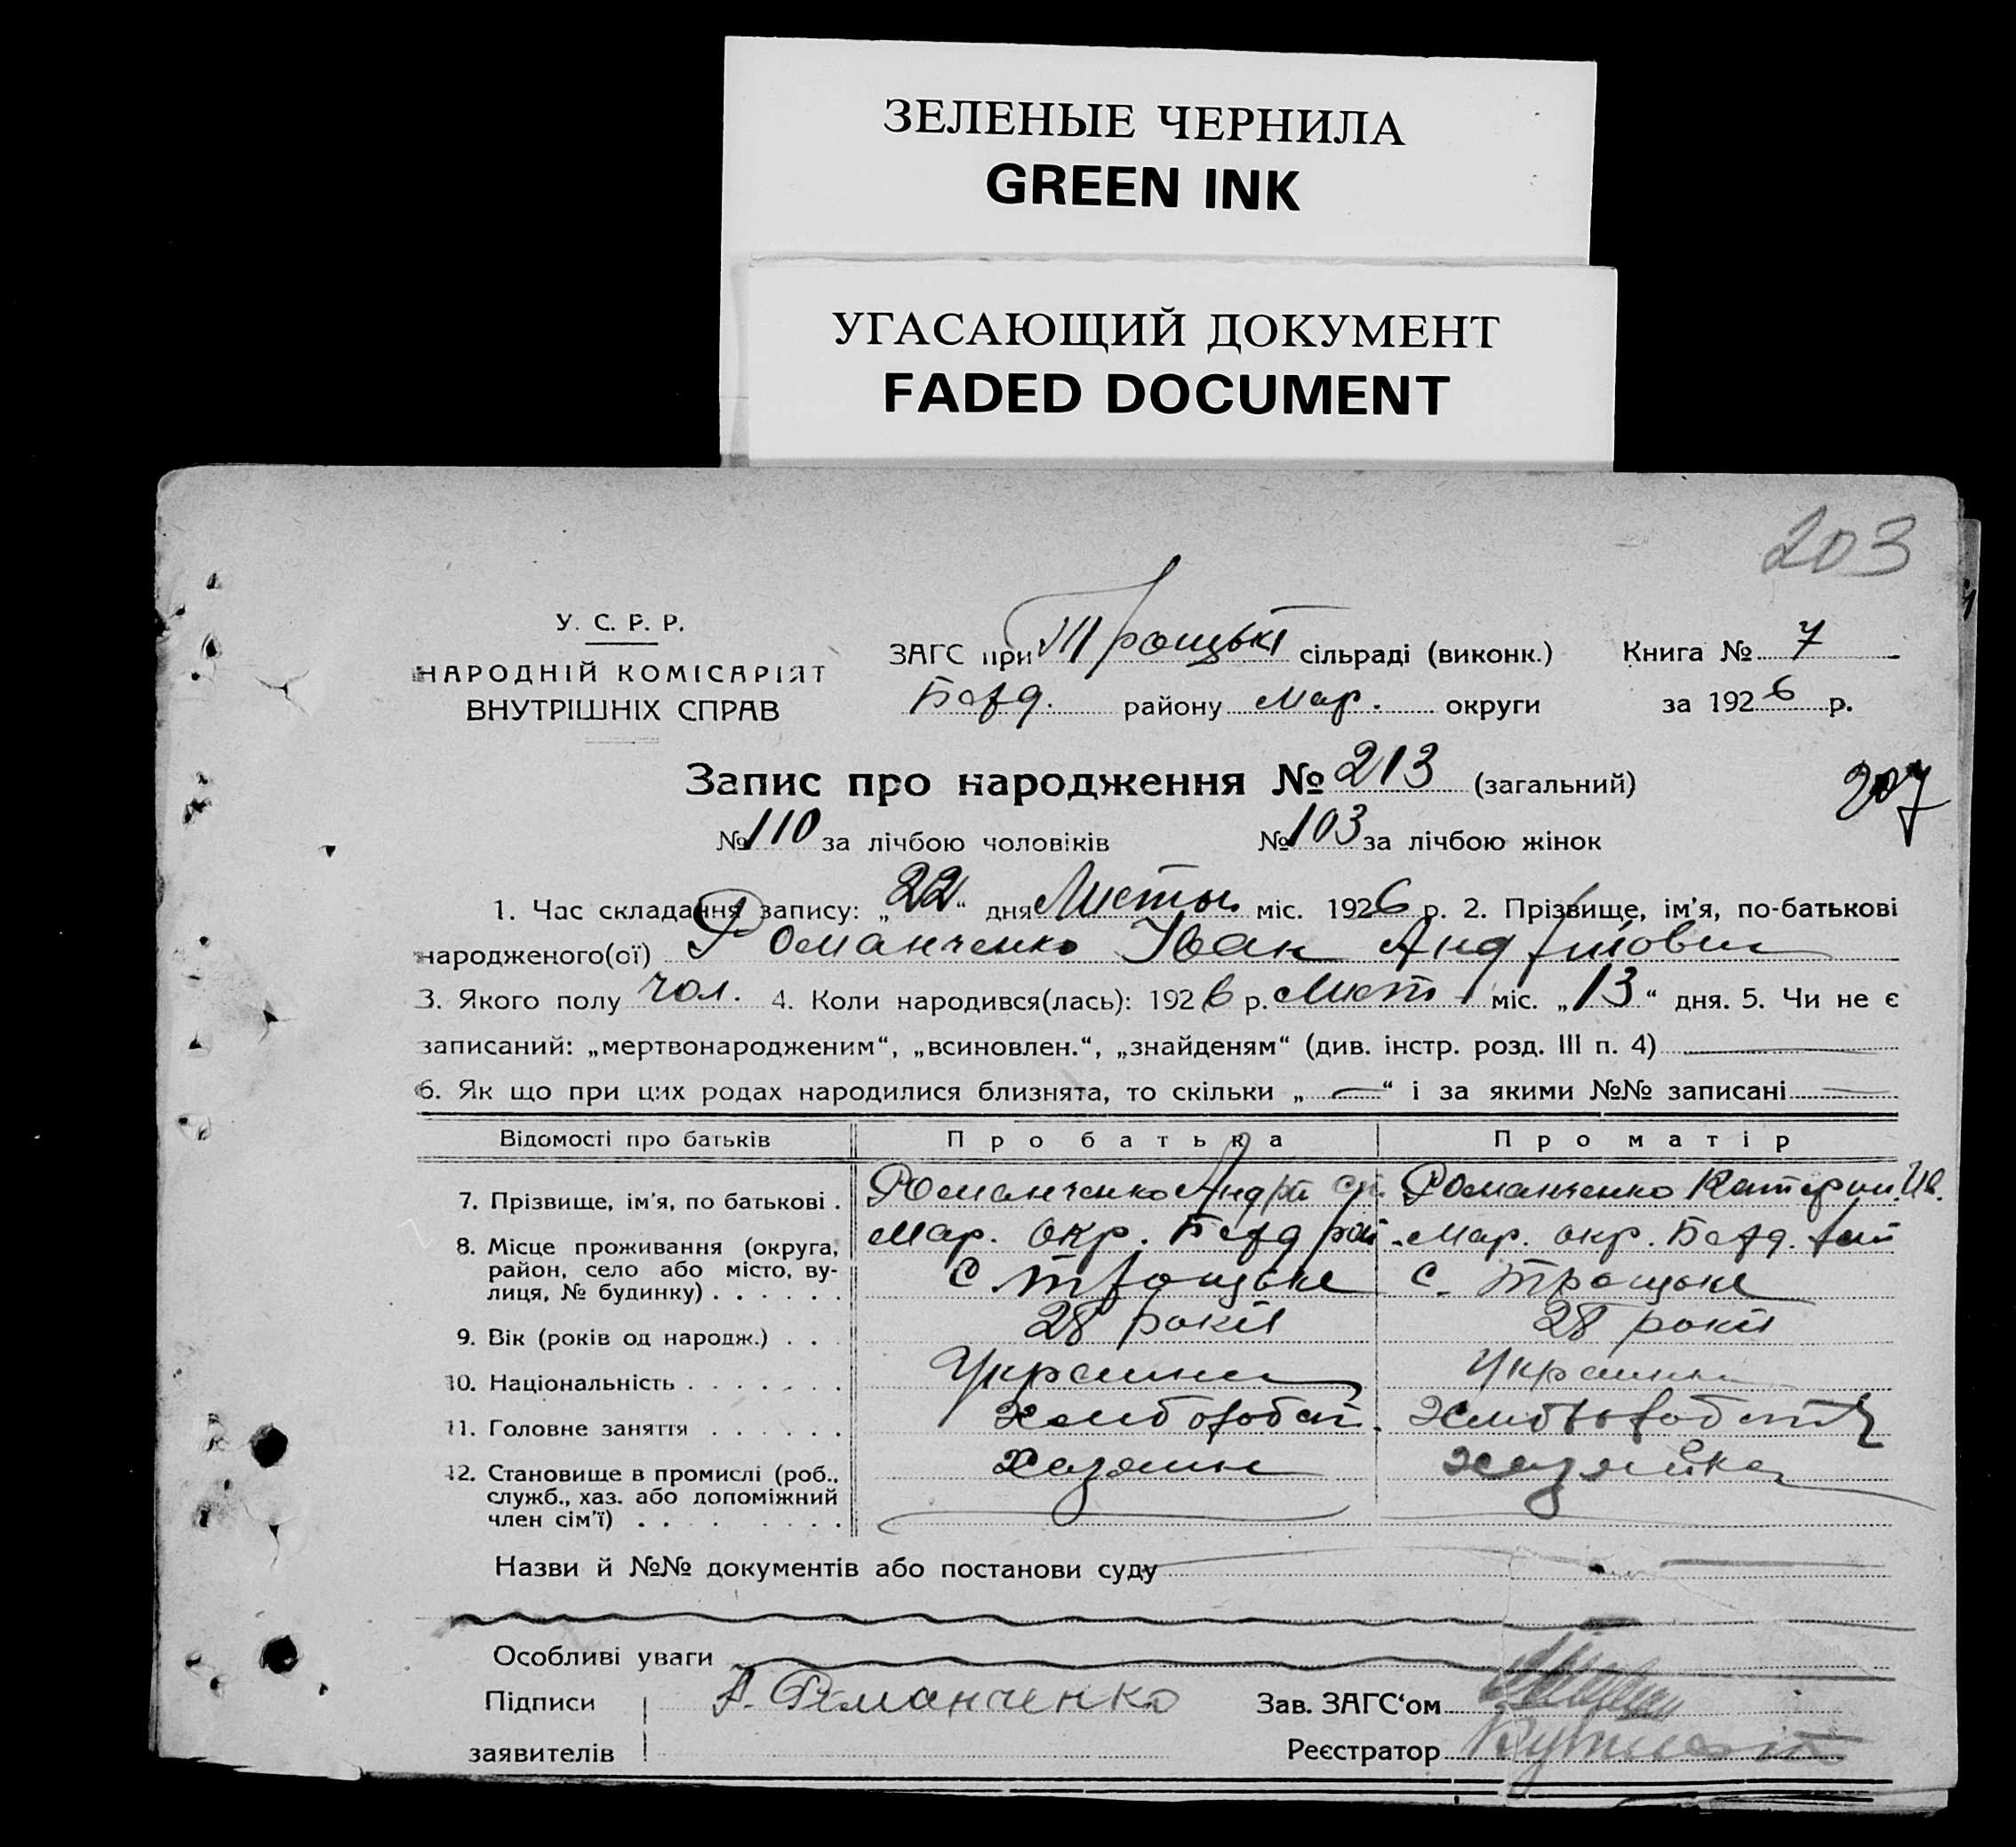 ЗЕЛЕНЫЕ ЧЕРНИЛА
GREEN INK
УГАСАЮЩИЙ ДОКУМЕНТ
FADED DOCUMENT
203
У. С. Р. Р.
НАРОДНІЙ КОМІСАРІЯТ
ВНУТРІШНІХ СПРАВ
ЗАГС при Троцькі сільраді (виконк.) Книга № 7
Берд. району Мар. округи за 1926 р.
Запис про народження № 213 (загальний)
207
№ 110 за лічбою чоловіків № 103 за лічбою жінок
1. Час складання запису: „22“ дня міс. 1926 р. 2. Прізвище, ім'я, по-батькові
народженого(ої) Романченко Іван Андрійович
3. Якого полу чол. 4. Коли народився(лась): 1926 р. Лист міс. „13“ дня. 5. Чи не є
записаний: „мертвонародженим“, „всиновлен.“, „знайденям“ (див. інстр. розд. III п. 4)
6. Як що при цих родах народилися близнята, то скільки „ — “ і за якими №№ записані
Відомості про батьків Про батька Про матір
7. Прізвище, ім'я, по батькові . Романченко Андрій Романченко Катерин. Ив.
8. Місце проживання (округа, Мар. окр. Берд рай. Мар. окр. Берд. рай
район, село або місто, ву- с. Троцьке с. Троцьке
лиця, № будинку) . . . . . .
9. Вік (років од народж.) . . . 28 років 28 років
10. Національність . . . . . . .
11. Головне заняття . . . . . .
12. Становище в промислі (роб., Хазяин хазяйка
служб., хаз. або допоміжний
член сім'ї) . . . . . . .
Назви й №№ документів або постанови суду
Особливі уваги
Підписи А. Романченко Зав. ЗАГС'ом
заявителів Реєстратор